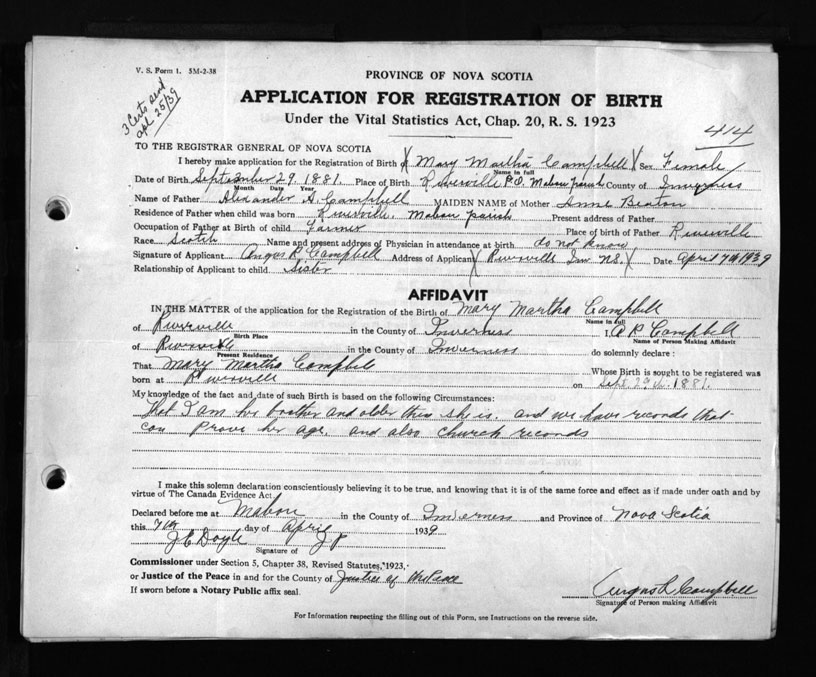 V. S. Form 1. 5M-2-38
3 Certs send
apl 25/39
PROVINCE OF NOVA SCOTIA
APPLICATION FOR REGISTRATION OF BIRTH
Under the Vital Statistics Act, Chap. 20, R. S. 1923
414
TO THE REGISTRAR GENERAL OF NOVA SCOTIA
I hereby make application for the Registration of Birth of Mary Martha Campbell Sex Female
Name in full
Date of Birth September 29. 1881. Place of Birth Riverville P.O. Mabou parish County of Inverness
Month Date Year
Name of Father Alexander A. Campbell MAIDEN NAME of Mother Anne Beaton
Residence of Father when child was born Riverville. Mabou parish Present address of Father
Occupation of Father at Birth of child Farmer Place of birth of Father Riverville
Race Scotch Name and present address of Physician in attendance at birth do not know
Signature of Applicant Angus R Campbell Address of Applicant Riverville Inv N.S. Date April 7th 1939
Relationship of Applicant to child Sister
AFFIDAVIT
IN THE MATTER of the application for the Registration of the Birth of Mary Martha Campbell
Name in full
of Riverville in the County of Inverness I, A R Campbell
Birth Place Name of Person Making Affidavit
of Riverville in the County of Inverness do solemnly declare :
Present Residence
That Mary Martha Campbell Whose Birth is sought to be registered was
born at Riverville on Sept. 29th. 1881.
My knowledge of the fact and date of such Birth is based on the following Circumstances:
That I am her brother and older than she is. and we have records that
can Prove her age. and also church records
I make this solemn declaration conscientiously believing it to be true, and knowing that it is of the same force and effect as if made under oath and by
virtue of The Canada Evidence Act.
Declared before me at Mabou in the County of Inverness and Province of Nova Scotia
this 7th day of April 1939
J E Doyle J P
Signature of
Commissioner under Section 5, Chapter 38, Revised Statutes, 1923,
or Justice of the Peace in and for the County of Justice of the Peace
If sworn before a Notary Public affix seal.
Angus R Campbell
Signature of Person making Affidavit
For Information respecting the filling out of this Form, see Instructions on the reverse side.